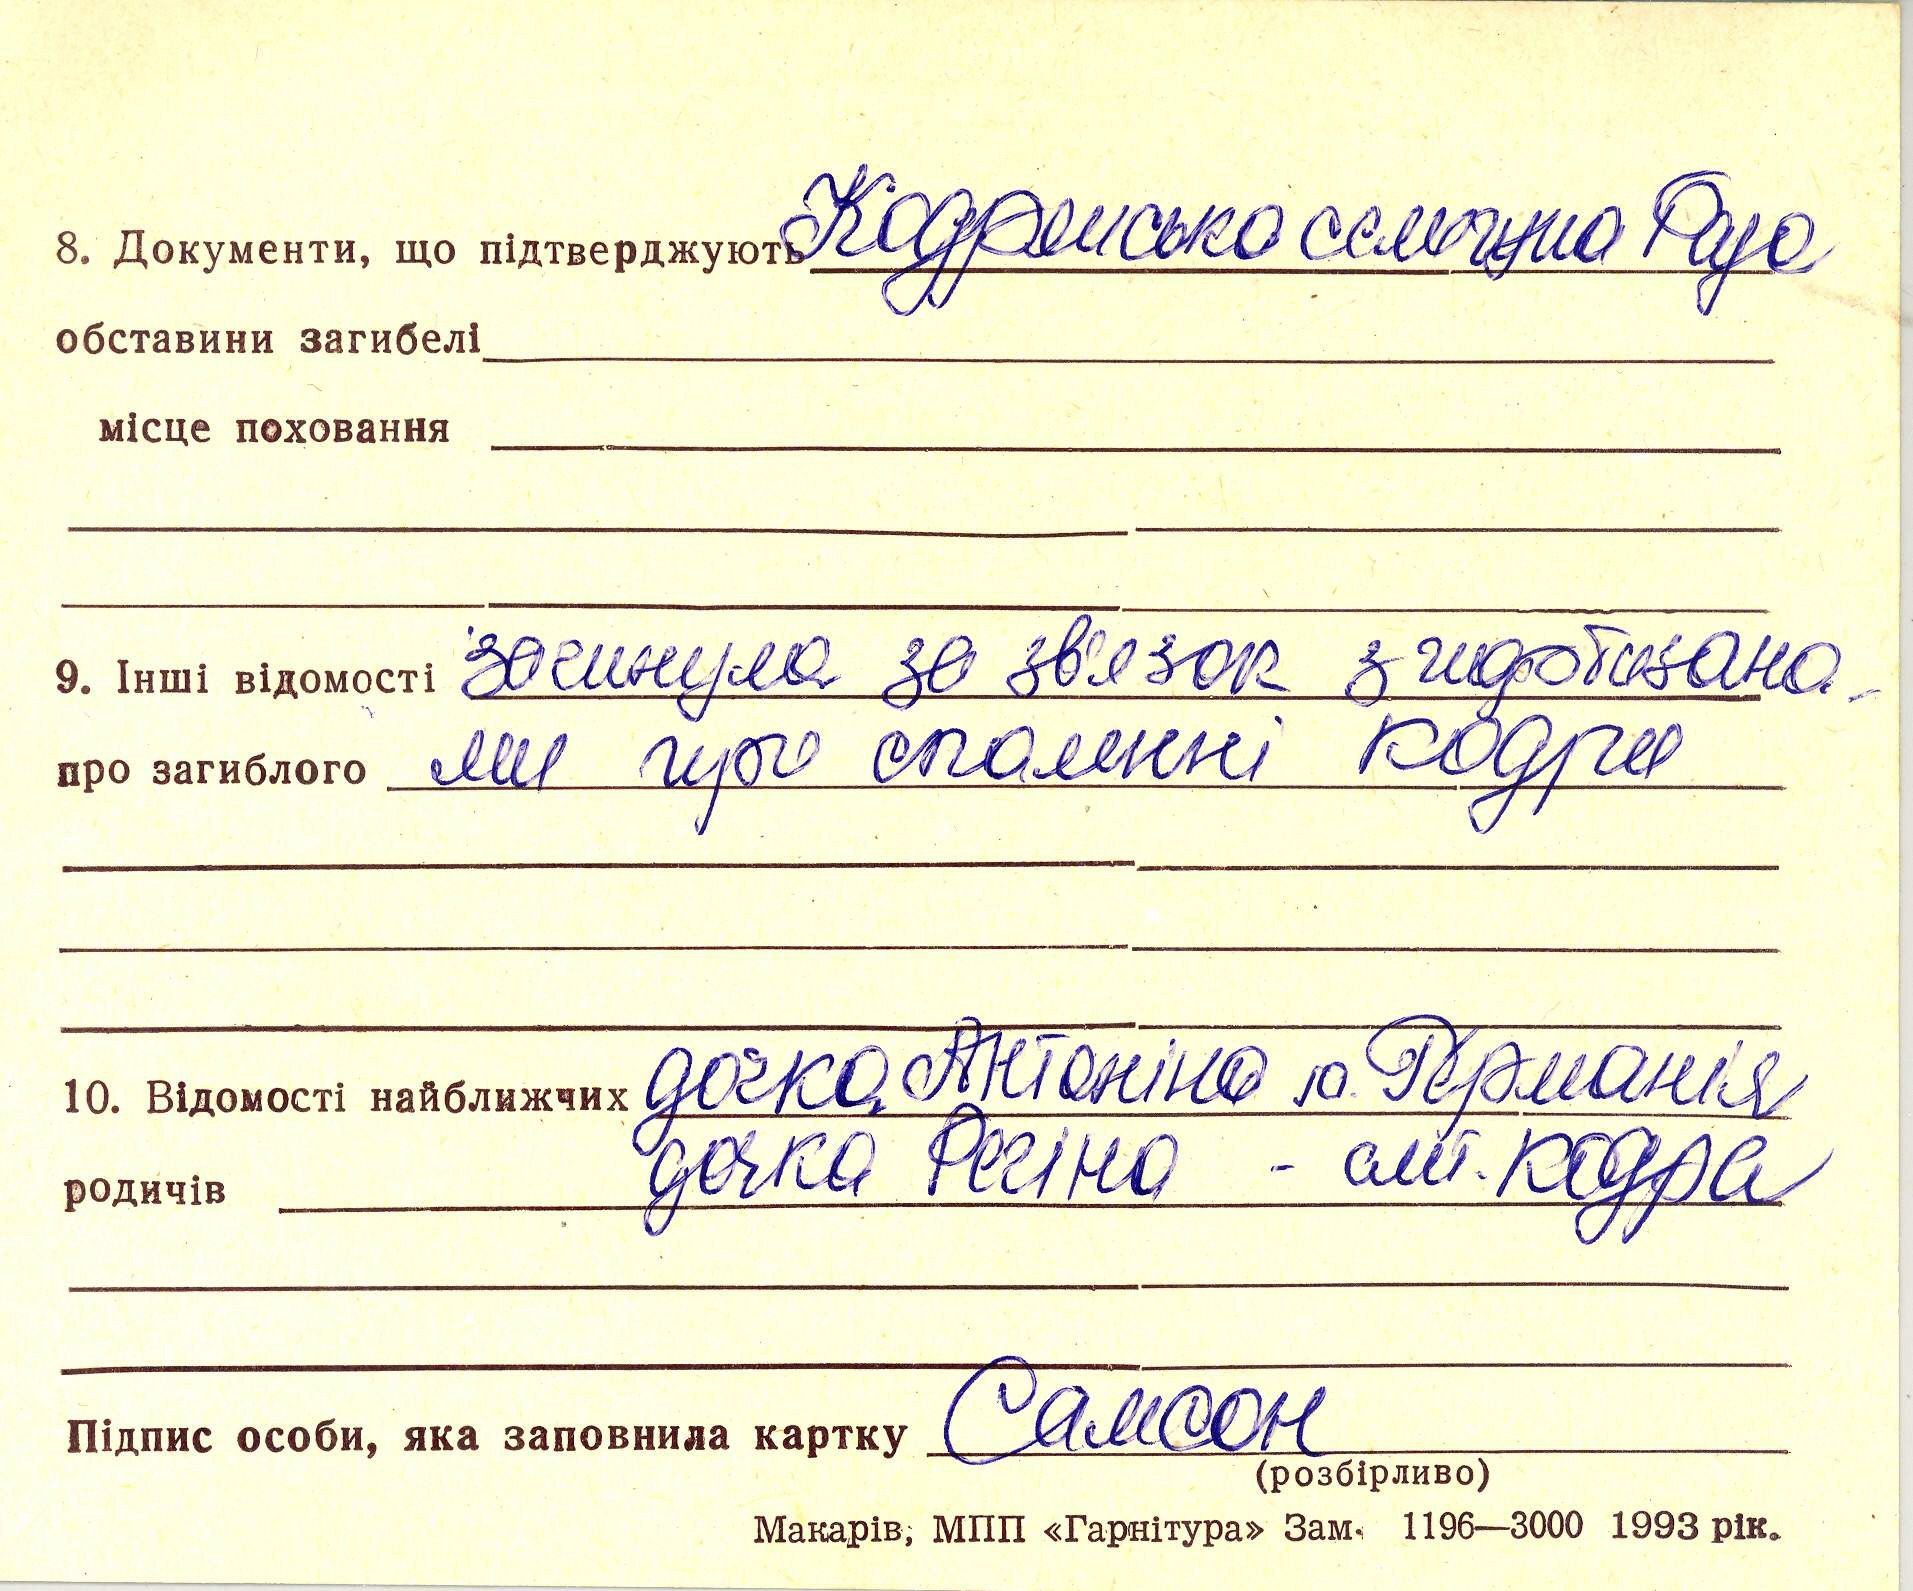 8. Документи, що підтверджують Кодрянська селищна Рада
обставини загибелі
місце поховання
9. Інші відомості загинула за зв'язок з партизана-
про загиблого ми при спаленні Кодри
10. Відомості найближчих дочка Антоніна Германія
родичів дочка Регіна - смт. Кодра
Підпис особи, яка заповнила картку Самсон
(розбірливо)
Макарів, МПП «Гарнітура» Зам. 1196—3000 1993 рік.